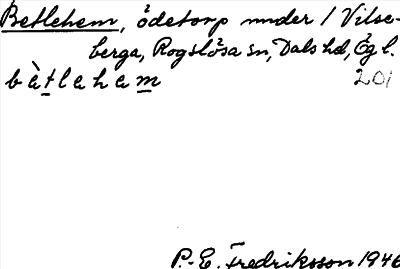 Betlehem, ödetorp under 1 Vilse-
berga, Rogslösa sn, Dals hd, Ög l.
bàtlaham 201
P.-E. Fredriksson 1946